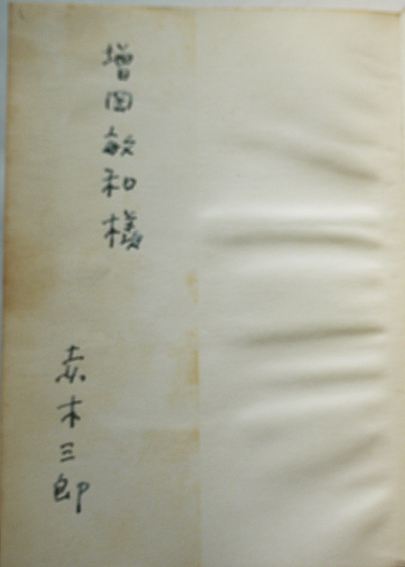 増岡敏和様
赤木三郎